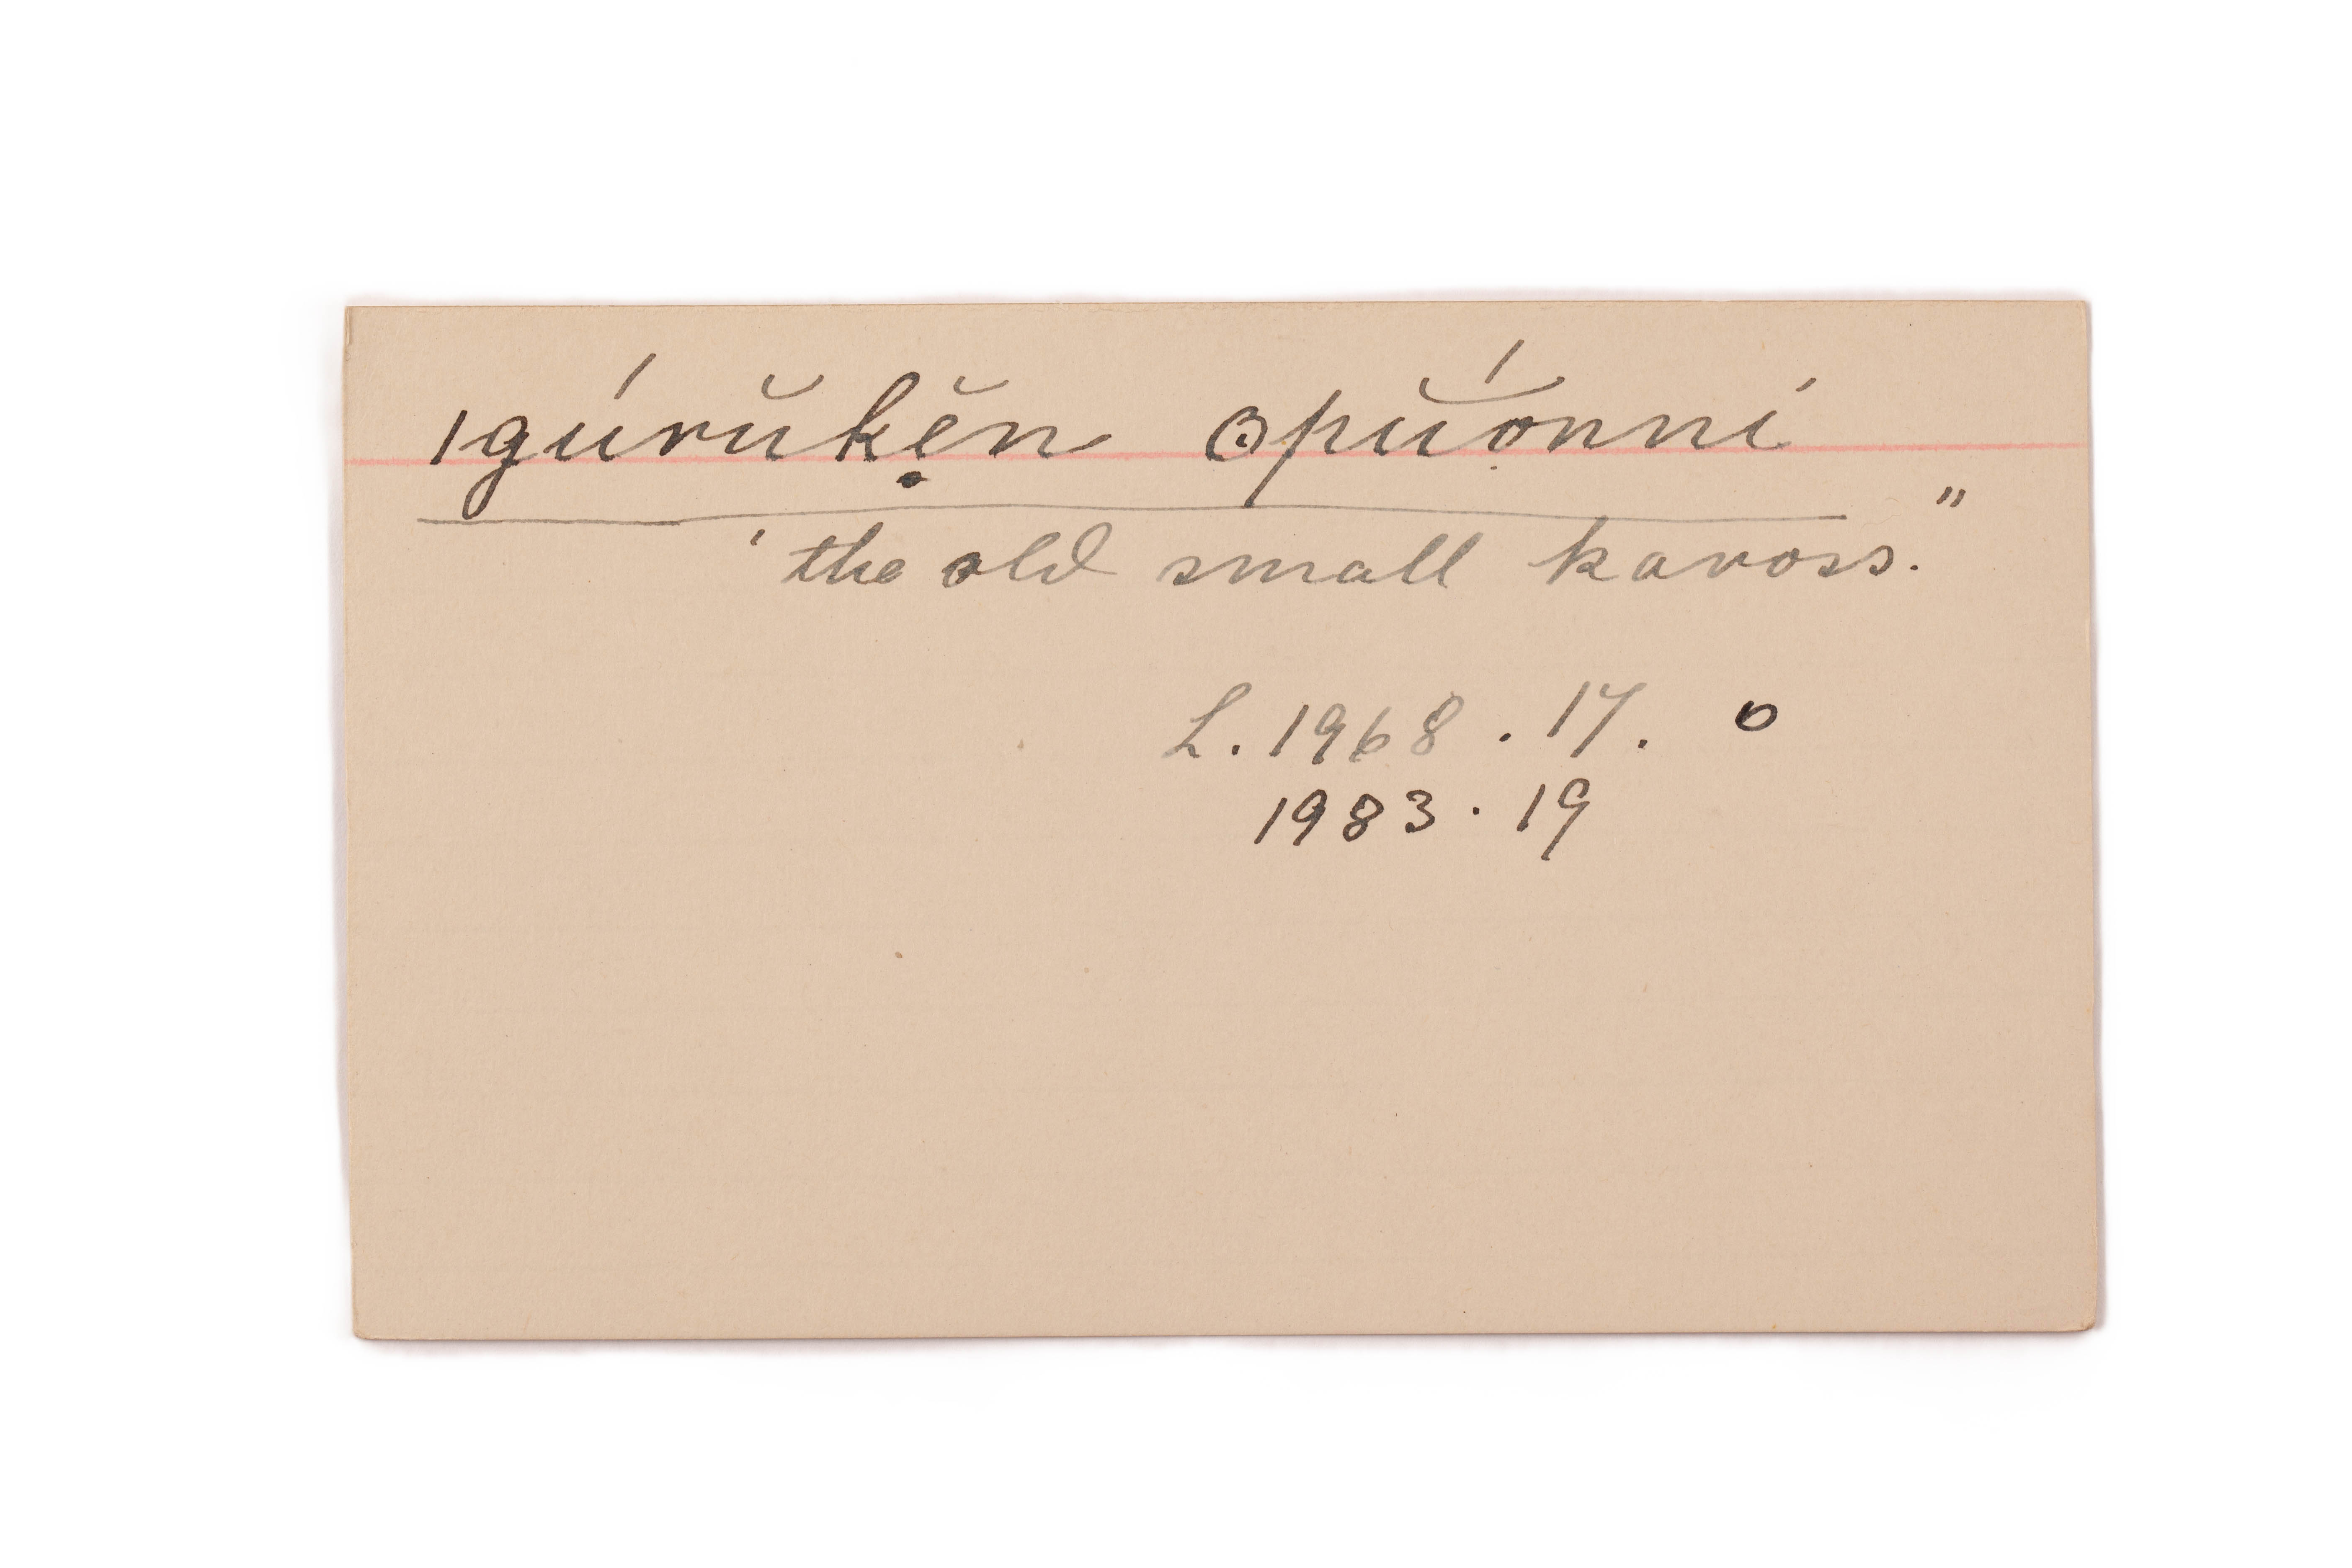 ǀgúrŭkẹ̆n ʘpŭ́onni
' the old small kaross."
L. 1968 . 17. o
1983 . 19